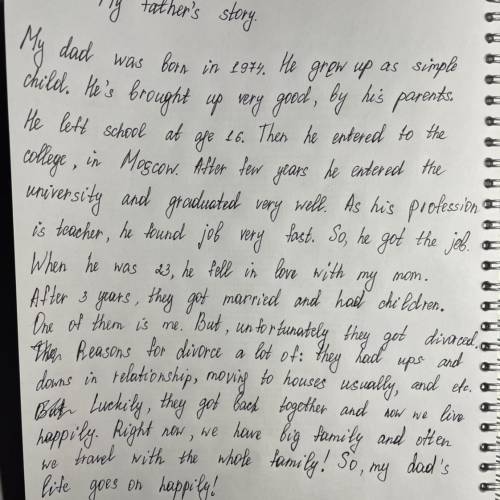 My father's story.
My dad was born in 1974. He grow up as simple
child. He's brought up very good, by his parents.
He left school at age 16. Then he entered to the
college, in Moscow. After few years he entered the
university and graduated very well. As his profession
is teacher, he found job very fast. So, he got the job.
When he was 23, he fell in love with my mom.
After 3 years, they got married and had children.
One of them is me. But, unfortunately they got divorced.
Reasons for divorce a lot of: they had ups and
downs in relationship, moving to houses usually, and etc.
Luckily, they got back together and now we live
happily. Right now, we have big family and often
we travel with the whole family! So, my dad's
life goes on happily!